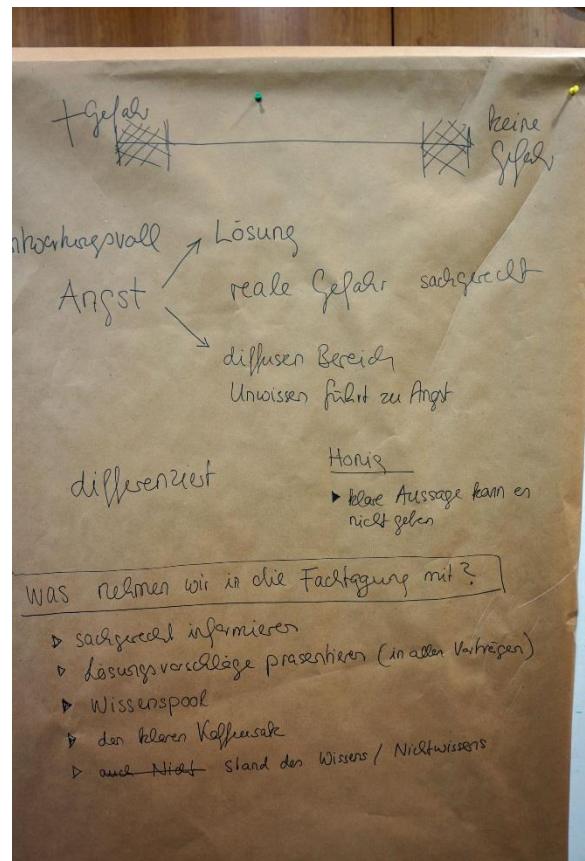 + Gefahr
keine
Gefahr
ntwortungsvoll
Lösung
Angst
reale Gefahr sachgerecht
diffusen Bereich
Unwissen führt zu Angst
differenziert
Honig
▶ klare Aussage kann es
nicht geben
Was nehmen wir in die Fachtagung mit?
▷ sachgerecht informieren
▷ Lösungsvorschläge präsentieren (in allen Vorträgen)
▶ Wissenspool
▶ den klaren Kaffeesatz
▷ auch Nicht Stand des Wissens / Nichtwissens